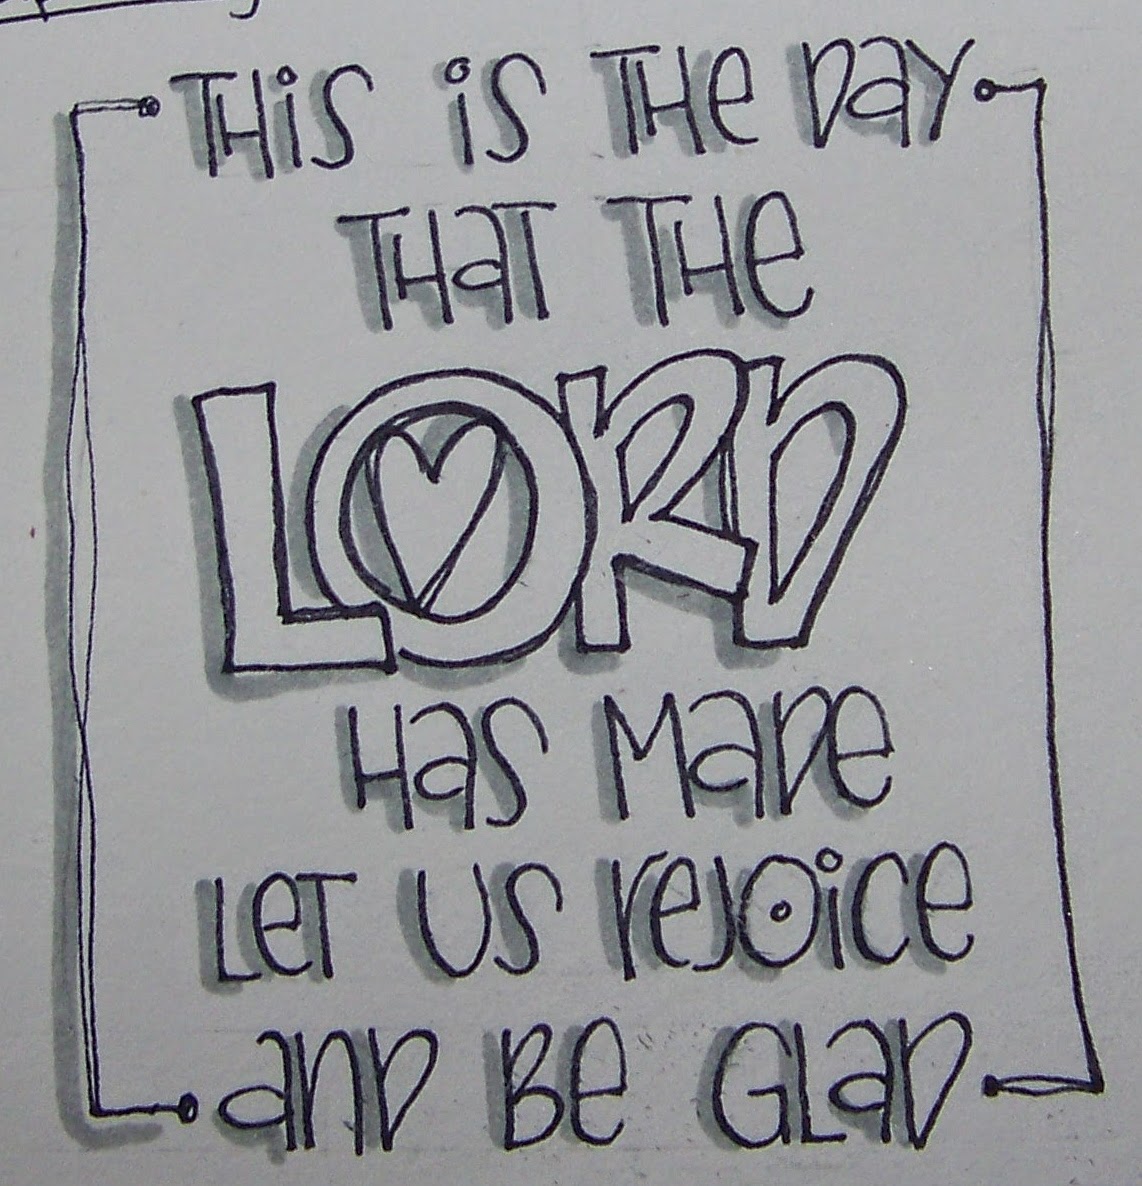 THiS iS THe Day
THaT THe
LORD
Has Made
LeT US rejoice
and Be Glad